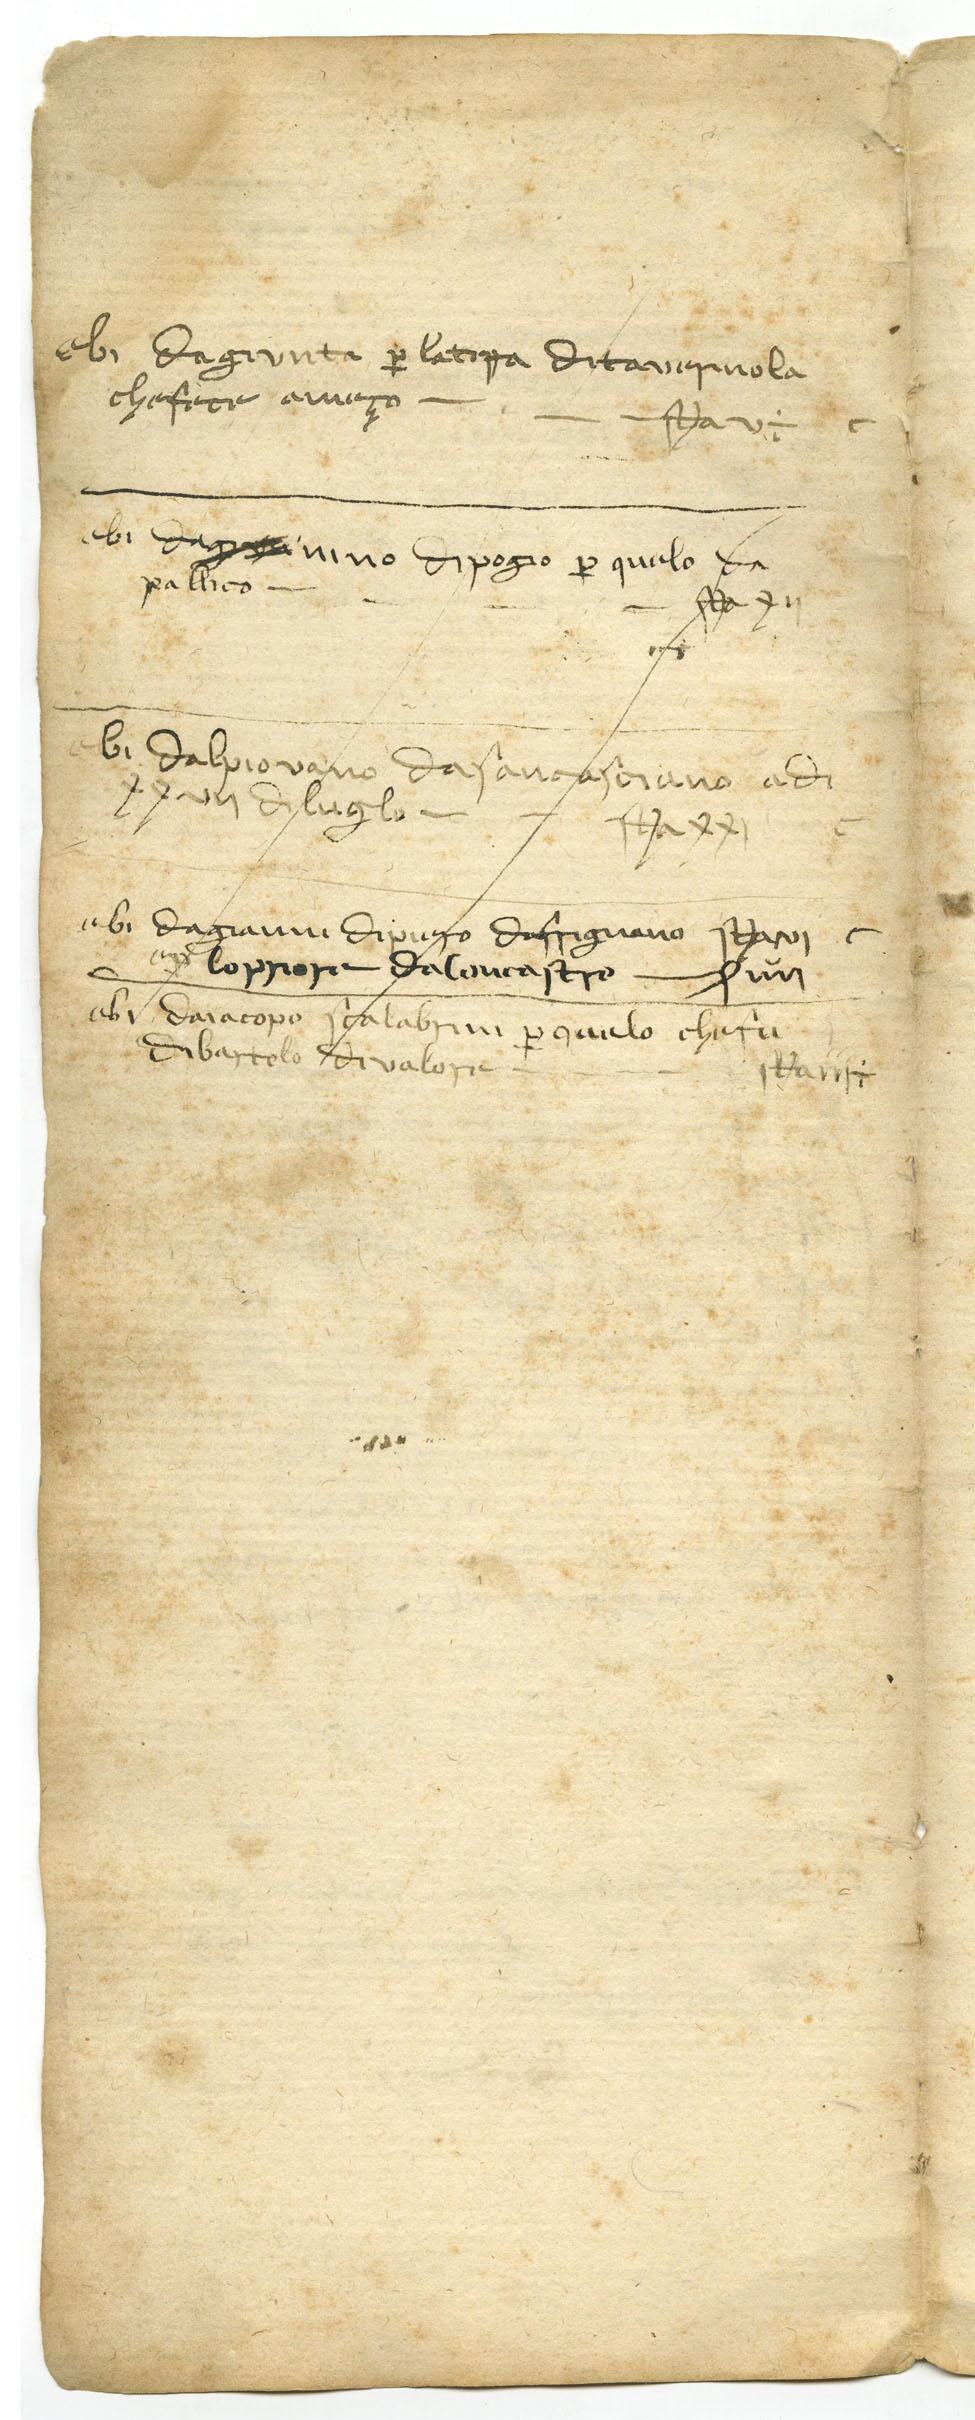 ebi dagiunta p latera ditavernola
chefece ameço — staa vi
ebi da nino dipogio p quelo da
pallieo — staa xii
ebi dalpiovano dasancasciano adi
xxvii diluglo — staa xxi
ebi dagianni dipiero dassignano staa vi
lopriore daloncastro — vii
ebi daiacopo scalabrini p quelo chefu
dibartolo divalore staa